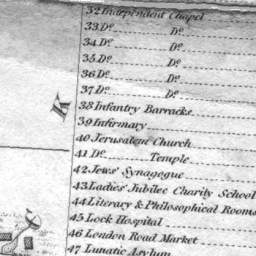 32 Independent Chapel
33 Do. Do.
34 Do. Do.
35 Do. Do.
36 Do. Do.
37 Do. Do.
38 Infantry Barracks
39 Infirmary
40 Jerusalem Church
41 Do. Temple
42 Jews' Synagogue
43 Ladies' Jubilee Charity School
44 Literary & Philosophical Rooms
45 Lock Hospital
46 London Road Market
47 Lunatic Asylum
K